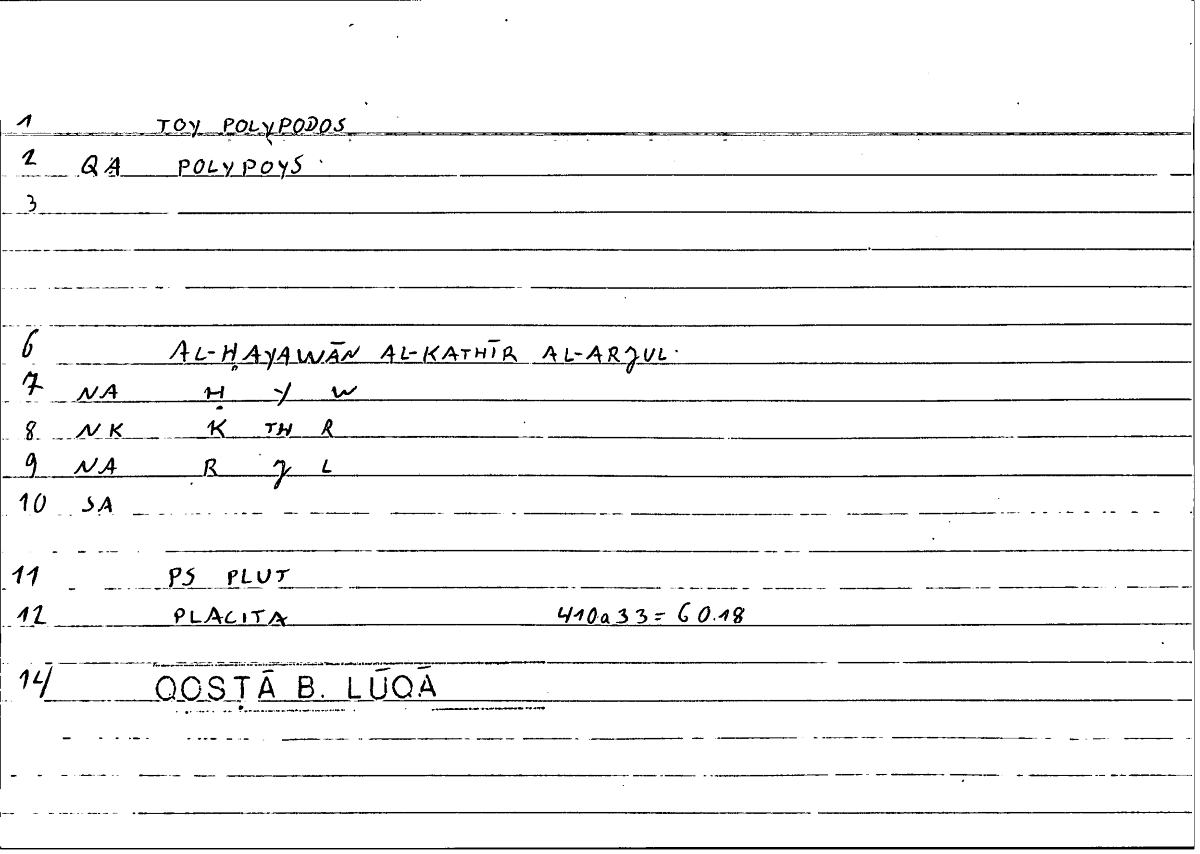 1 TOY POLYPODOS
2 QA POLYPOYS
3
6 AL-ḤAYAWĀN AL-KATHĪR AL-ARJUL
7 NA Ḥ Y W
8 NK K TH R
9 NA R J L
10 SA
11 PS PLUT
12 PLACITA 410a33 = 60.18
14/ QOSṬĀ B. LŪQĀ